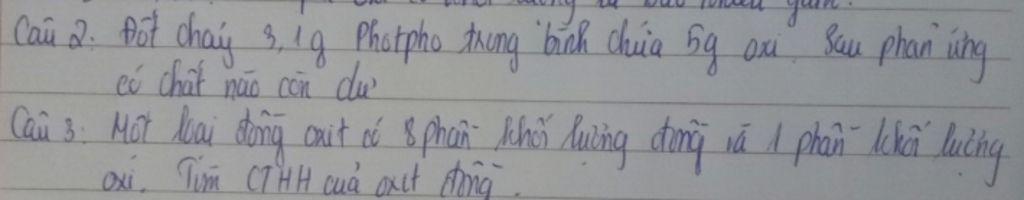 Câu 2. Đốt cháy 3,1g Photpho trong bình chứa 5g oxi. Sau phản ứng
có chất nào còn dư
Câu 3. Một loại đồng oxit có 8 phần khối lượng đồng và 1 phần khối lượng
oxi. Tìm CTHH của oxit đồng.